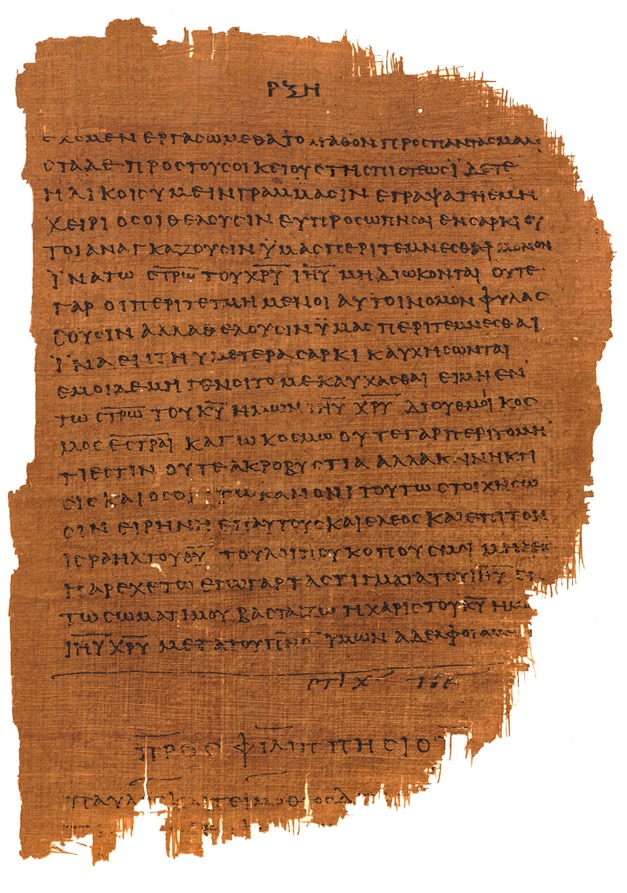 ΡΞΗ
ΕΧΟΜΕΝ ΕΡΓΑΣΩΜΕΘΑ ΤΟ ΑΓΑΘΟΝ ΠΡΟΣ ΠΑΝΤΑΣ ΜΑΛΙ
ΣΤΑ ΔΕ ΠΡΟΣ ΤΟΥΣ ΟΙΚΕΙΟΥΣ ΤΗΣ ΠΙΣΤΕΩΣ ΪΔΕΤΕ
ΗΛΙΚΟΙΣ ΥΜΕΙΝ ΓΡΑΜΜΑΣΙΝ ΕΓΡΑΨΑ ΤΗ ΕΜΗ
ΧΕΙΡΙ ΟΣΟΙ ΘΕΛΟΥΣΙΝ ΕΥΠΡΟΣΩΠΗΣΑΙ ΕΝ ΣΑΡΚΙ ΟΥ
ΤΟΙ ΑΝΑΓΚΑΖΟΥΣΙΝ ΫΜΑΣ ΠΕΡΙΤΕΜΝΕΣΘΑΙ ΜΟΝΟΝ
ΪΝΑ ΤΩ Σ̅Τ̅Ρ̅Ω̅ ΤΟΥ Χ̅Ρ̅Υ̅ Ι̅Η̅Υ̅ ΜΗ ΔΙΩΚΟΝΤΑΙ ΟΥΤΕ
ΓΑΡ ΟΙ ΠΕΡΙΤΕΤΜΗΜΕΝΟΙ ΑΥΤΟΙ ΝΟΜΟΝ ΦΥΛΑΣ
ΣΟΥΣΙΝ ΑΛΛΑ ΘΕΛΟΥΣΙΝ ΫΜΑΣ ΠΕΡΙΤΕΜΝΕΣΘΑΙ
ΪΝΑ ΕΝ ΤΗ ΥΜΕΤΕΡΑ ΣΑΡΚΙ ΚΑΥΧΗΣΩΝΤΑΙ
ΕΜΟΙ ΔΕ ΜΗ ΓΕΝΟΙΤΟ ΜΕ ΚΑΥΧΑΣΘΑΙ ΕΙ ΜΗ ΕΝ
ΤΩ Σ̅Τ̅Ρ̅Ω̅ ΤΟΥ Κ̅Υ̅ ΗΜΩΝ Ι̅Η̅Υ̅ Χ̅Ρ̅Υ̅ ΔΙ ΟΥ ΕΜΟΙ ΚΟΣ
ΜΟΣ Ε̅Σ̅Τ̅Ρ̅Α̅Ι̅ ΚΑΓΩ ΚΟΣΜΩ ΟΥΤΕ ΓΑΡ ΠΕΡΙΤΟΜΗ
ΤΙ ΕΣΤΙΝ ΟΥΤΕ ΑΚΡΟΒΥΣΤΙΑ ΑΛΛΑ ΚΑΙΝΗ ΚΤΙ
ΣΙΣ ΚΑΙ ΟΣΟΙ ΤΩ ΚΑΝΟΝΙ ΤΟΥΤΩ ΣΤΟΙΧΗΣΩ
ΣΙΝ ΕΙΡΗΝΗ ΕΠ ΑΥΤΟΥΣ ΚΑΙ ΕΛΕΟΣ ΚΑΙ ΕΠΙ ΤΟΝ
ΙΣΡΑΗΛ ΤΟΥ Θ̅Υ̅ ΤΟΥ ΛΟΙΠΟΥ ΚΟΠΟΥΣ ΜΟΙ ΜΗΔΕΙΣ
ΠΑΡΕΧΕΤΩ ΕΓΩ ΓΑΡ ΤΑ ΣΤΙΓΜΑΤΑ ΤΟΥ Ι̅Η̅Υ̅ ΕΝ
ΤΩ ΣΩΜΑΤΙ ΜΟΥ ΒΑΣΤΑΖΩ Η ΧΑΡΙΣ ΤΟΥ Κ̅Υ̅ ΗΜΩ
Ι̅Η̅Υ̅ Χ̅Ρ̅Υ̅ ΜΕΤΑ ΤΟΥ Π̅Ν̅Σ̅ ΫΜΩΝ ΑΔΕΛΦΟΙ ΑΜΗΝ
ΣΤΙΧ ΤΟΕ
ΠΡΟΣ ΦΙΛΙΠΠΗΣΙΟΥ
ΠΑΥΛΟΣ ΚΑΙ ΤΕΙΜΟΘΕΟΣ Δ